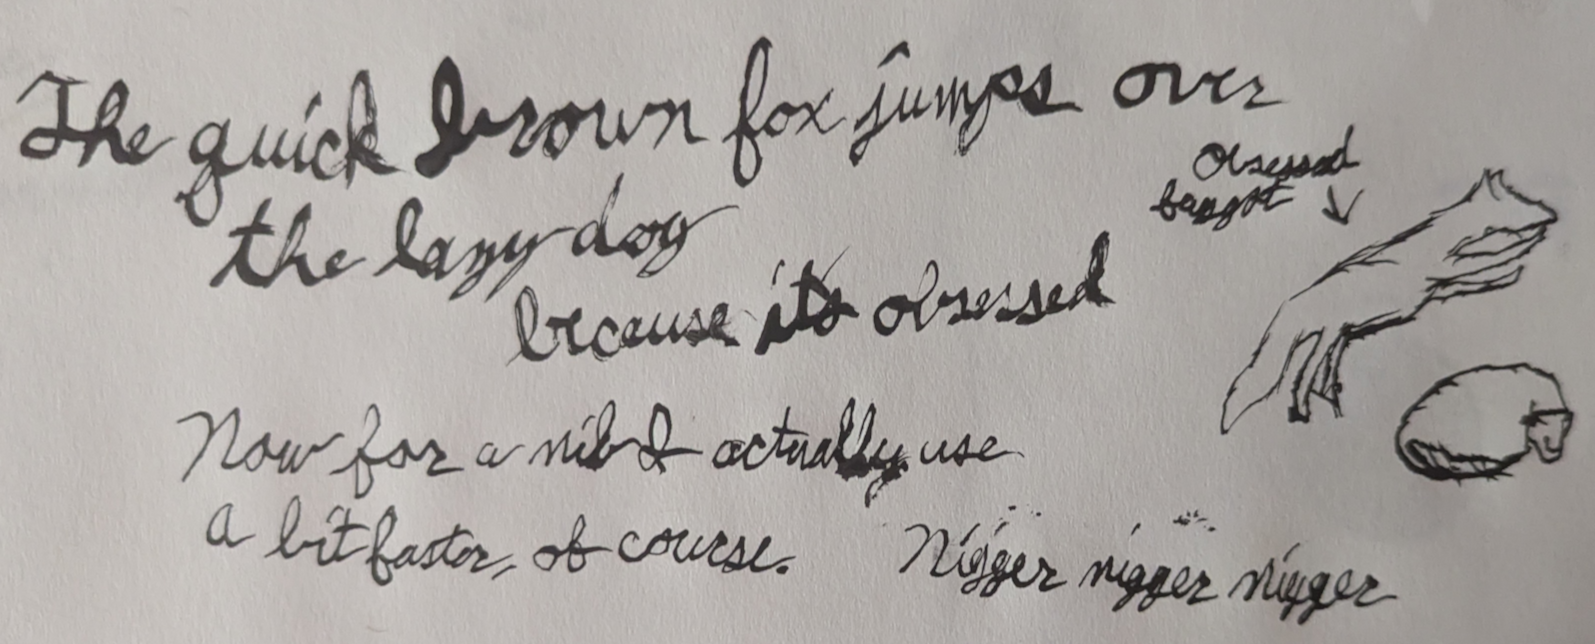 The quick brown fox jumps over
the lazy dog
because its obsessed
Obsessed
faggot
Now for a nib I actually use
a bit faster, of course.
Nigger nigger nigger